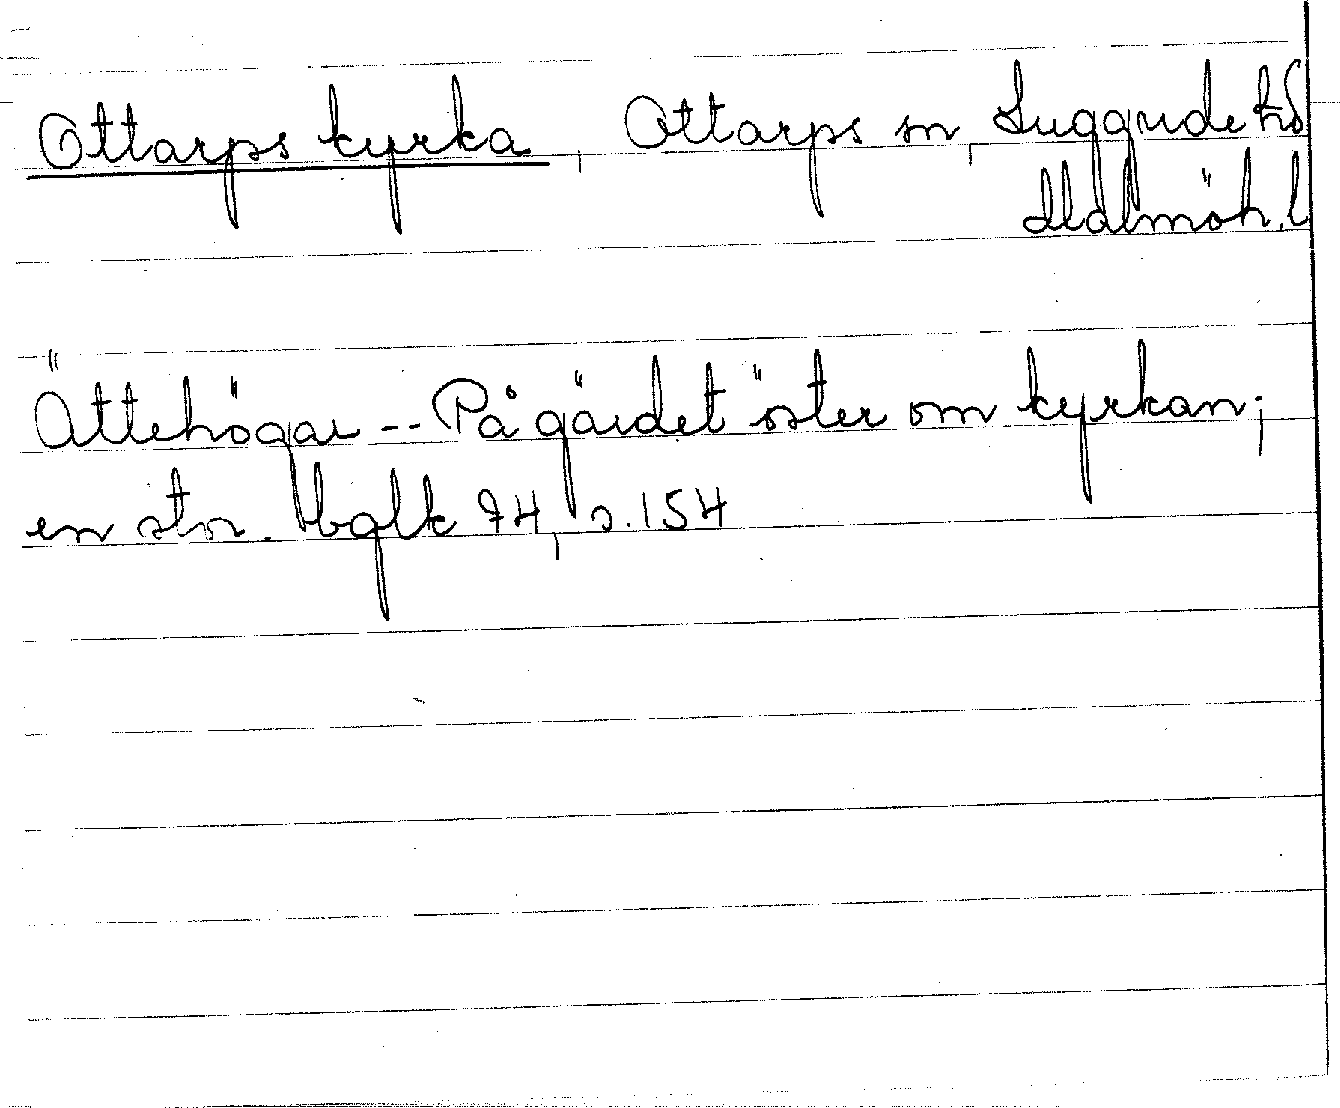 Ottarps kyrka, Ottarps sn, Luggude hd
Malmöh. l
Ättehögar -- På gärdet öster om kyrkan;
en stor. bglk 74, s. 154